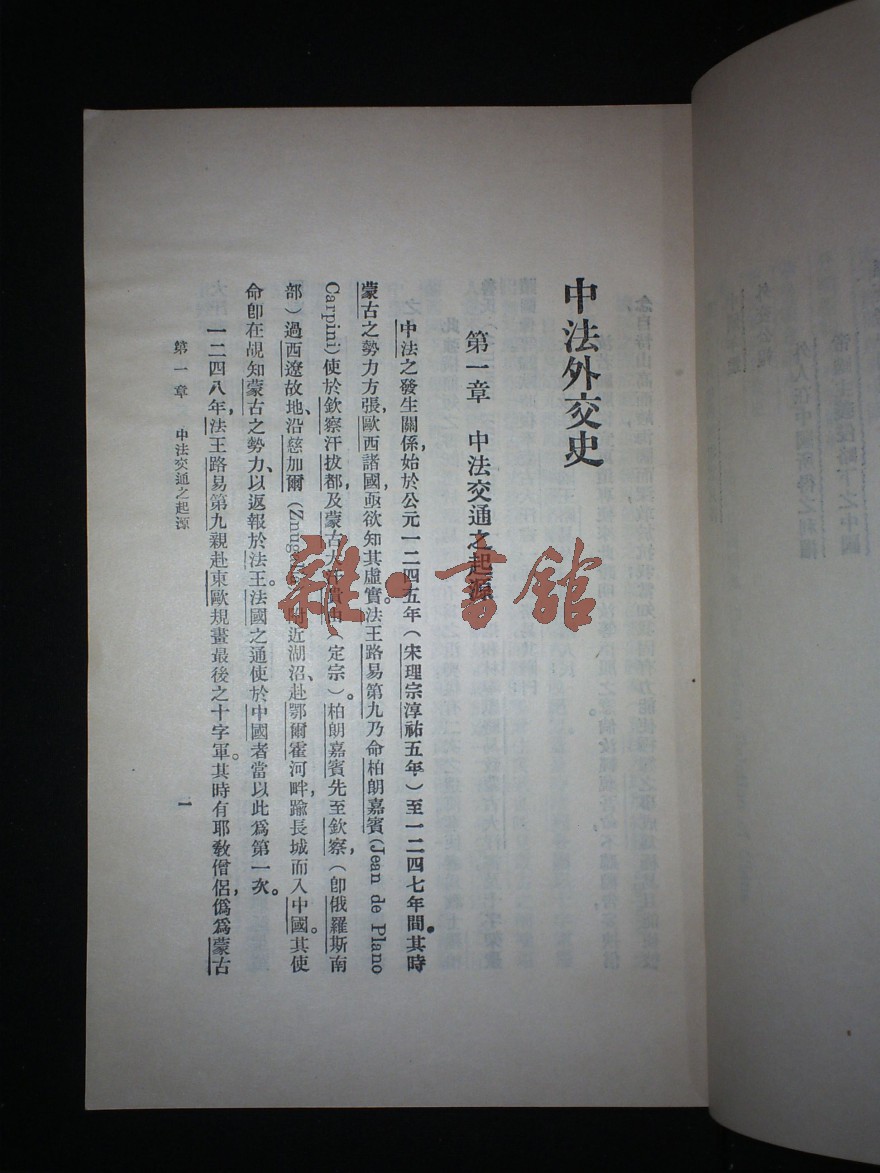 中法外交史
第一章 中法交通之起源
中法之發生關係,始於公元一二四五年(宋理宗淳祐五年)至一二四七年間。其時
蒙古之勢力方張,歐西諸國,亟欲知其虛實。法王路易第九乃命柏朗嘉賓(Jean de Plano
Carpini)使於欽察汗拔都,及蒙古大汗貴由(定宗)。柏朗嘉賓先至欽察,(即俄羅斯南
部)過西遼故地、沿慈加爾 附近湖沼、赴鄂爾霍河畔,踰長城而入中國。其使
命卽在覘知蒙古之勢力、以返報於法王。法國之通使於中國者當以此爲第一次。
一二四八年,法王路易第九親赴東歐規畫最後之十字軍。其時有耶敎僧侶,僞爲蒙古
第一章 中法交通之起源
一
雜·書館